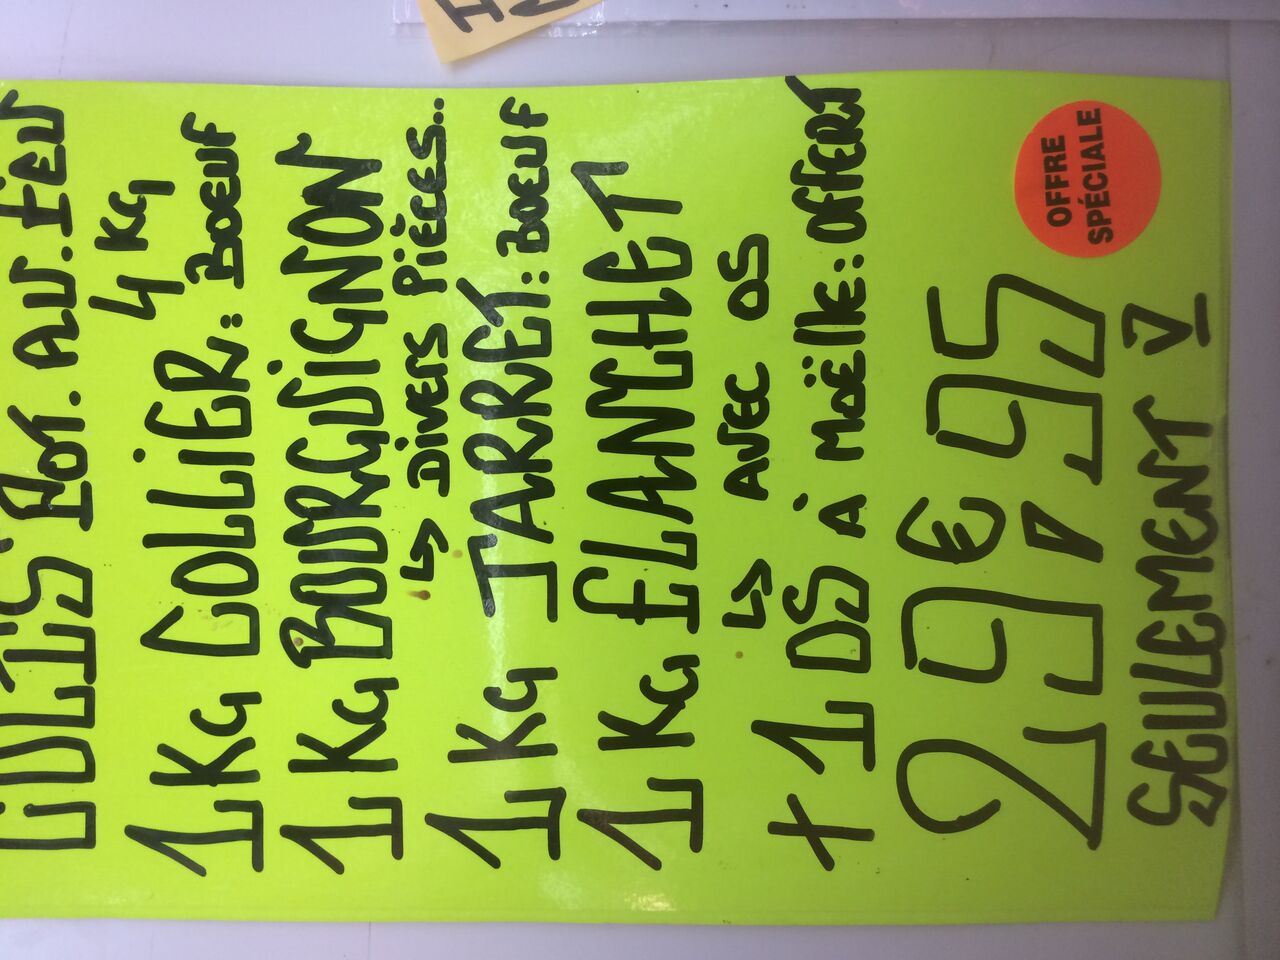 POT. AU. FEU
4 KG
1 KG COLLIER: BOEUF
1 KG BOURGUIGNON
↳ DIVERS PIÈCES..
1 KG JARRET: BOEUF
1 KG FLANCHET
↳ AVEC OS
+ 1 OS À MOËLLE: OFFERT
29€95
SEULEMENT ∇
OFFRE
SPÉCIALE